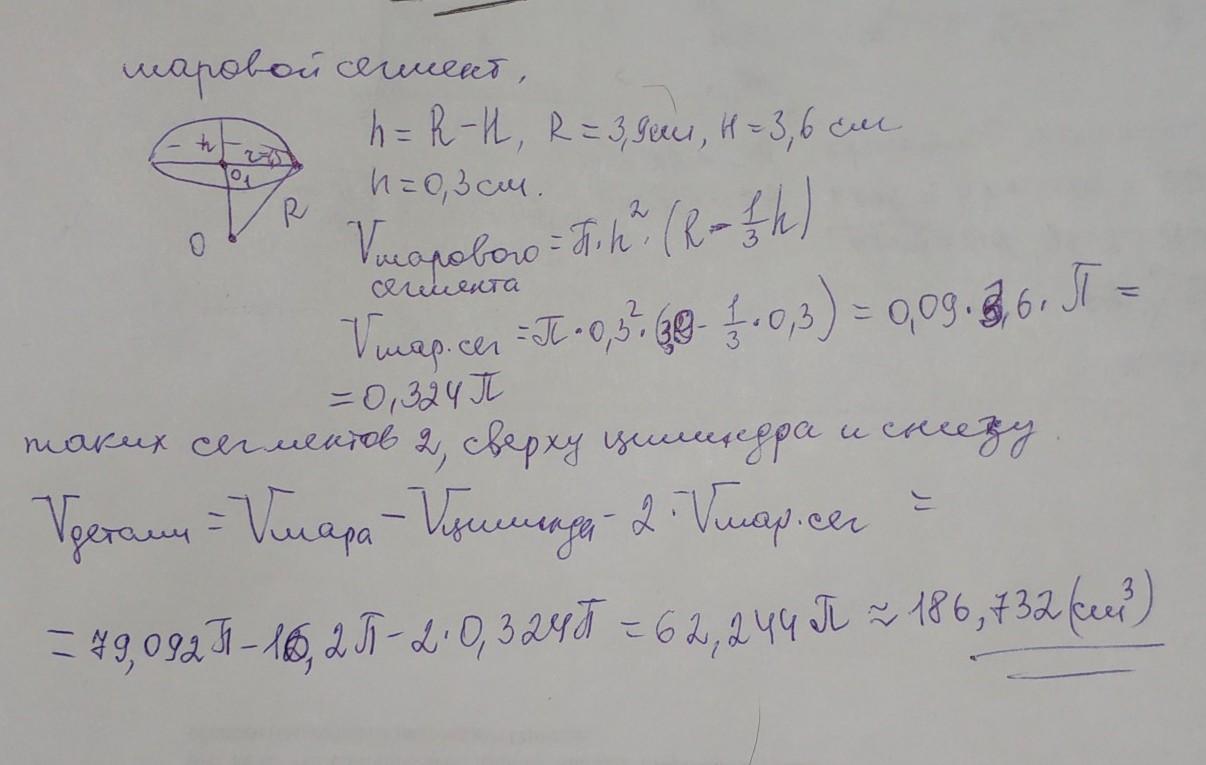 шаровой сегмент,
h = R - H, R = 3,9см, H = 3,6 см
h = 0,3 см.
h
O₁
R
O
Vшарового сегмента = π · h² · (R - 1/3 h)
Vшар.сег = π · 0,3² · (3,9 - 1/3 · 0,3) = 0,09 · 3,6 · π =
= 0,324π
таких сегментов 2, сверху цилиндра и снизу.
Vдетали = Vшара - Vцилиндра - 2 · Vшар.сег =
= 79,092π - 16,2π - 2 · 0,324π = 62,244π ≈ 186,732 (см³)